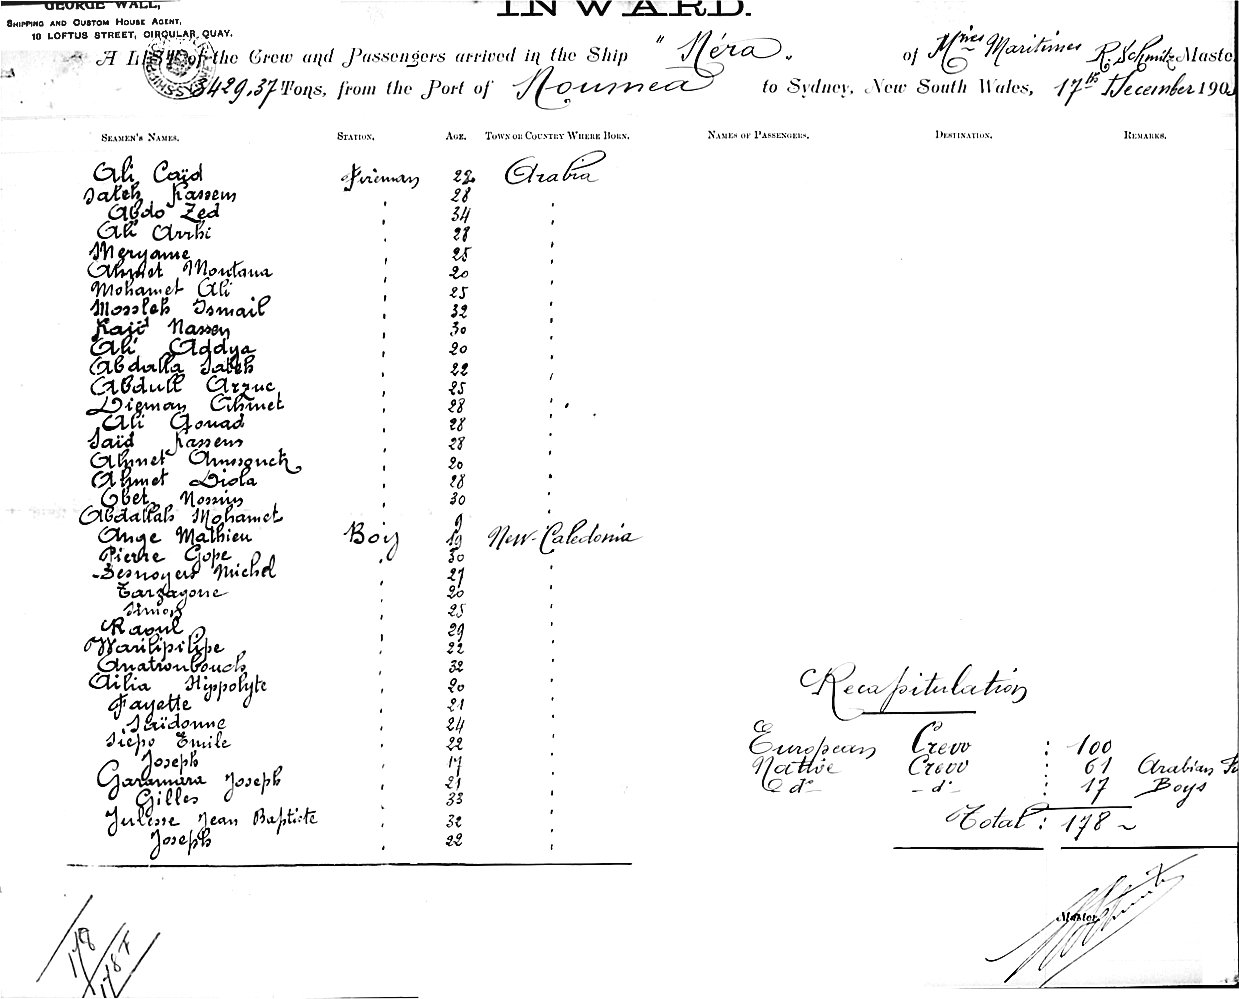 GEORGE WALL,
SHIPPING AND CUSTOM HOUSE AGENT,
10 LOFTUS STREET, CIRCULAR QUAY.
INWARD.
A LIST of the Crew and Passengers arrived in the Ship "Néra". of Mries Maritimes R. Schmitz Maste
3429.37 Tons, from the Port of Noumea to Sydney, New South Wales, 17th December 190
SEAMEN'S NAMES. STATION. AGE. TOWN OR COUNTRY WHERE BORN. NAMES OF PASSENGERS. DESTINATION. REMARKS.
Ali Caïd Fireman 22 Arabia
Saleh Kassem 28 "
Abdo Zed " 34 "
Ali Arrhi " 28 "
Meryame " 25 "
Ahmet Montana " 20 "
Mohamet Ali " 25 "
Mossleh Ismail " 32 "
Kaïd Nassen " 30 "
Ali Addya " 20 "
Abdalla Saleh " 22 "
Abdull Arzuc " 25 "
Digman Ahmet " 28 "
Ali Gouad " 28 "
Saïd Kassem " 28 "
Ahmet " 20 "
Ahmet Diola " 28 "
Obet Nossin " 30 "
Abdallah Mohamet " 9 "
Ange Mathieu Boy 19 New-Caledonia
Pierre Gope 30
Desnoyers Michel " 27 "
Tarzagone " 20 "
Simon " 25 "
Raoul " 29 "
Warilipilipe " 22 "
Anatronbouch " 32 "
Ailia Hippolyte " 20 "
Fayette " 21 "
Saïdonne " 24 "
Siepo Emile " 22 "
Joseph " 17 "
Garamara Joseph " 21 "
Gilles " 33 "
Julesse Jean Baptiste " 32 "
Joseph " 22 "
Recapitulation
European Crew : 100
Native Crew : 61 Arabian
d° d° : 17 Boys
Total : 178
Master
178
178